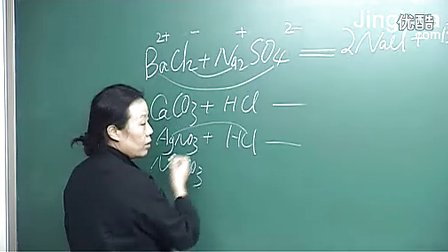 优酷
2+ - + 2-
BaCl2 + Na2SO4 = 2NaCl +
CaCO3 + HCl —
AgNO3 + HCl —